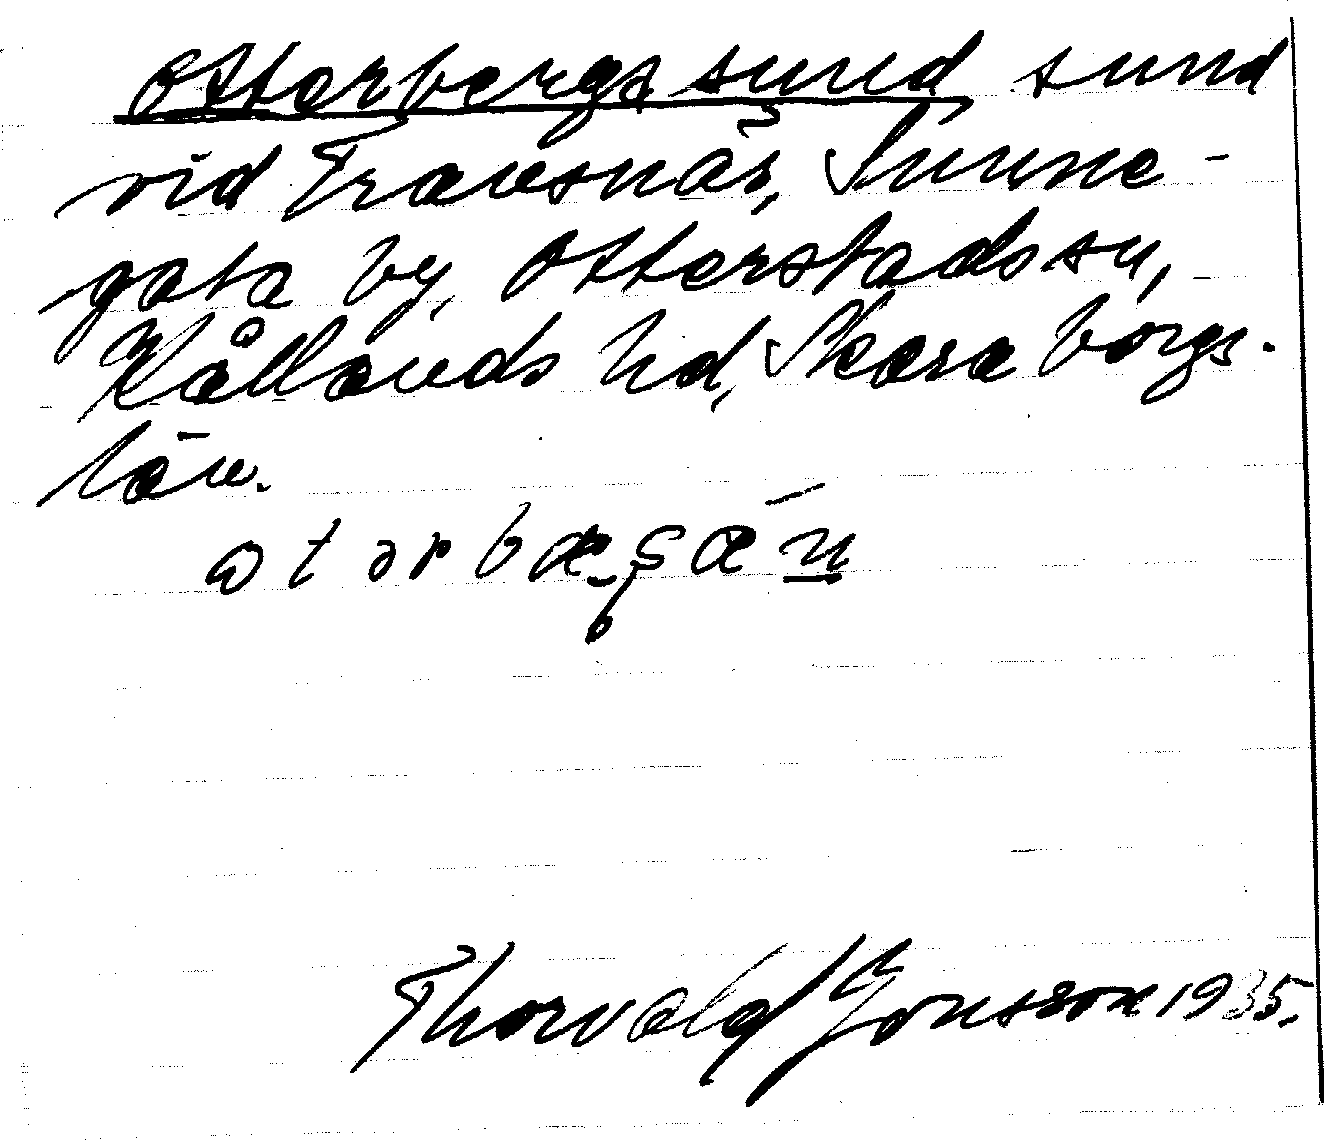 Otterbergs sund sund
vid Fransnäs, Sunne-
gata by, Otterstads sn,
Kållands hd, Skaraborgs.
län.
Thorvald Jonsson 1935.